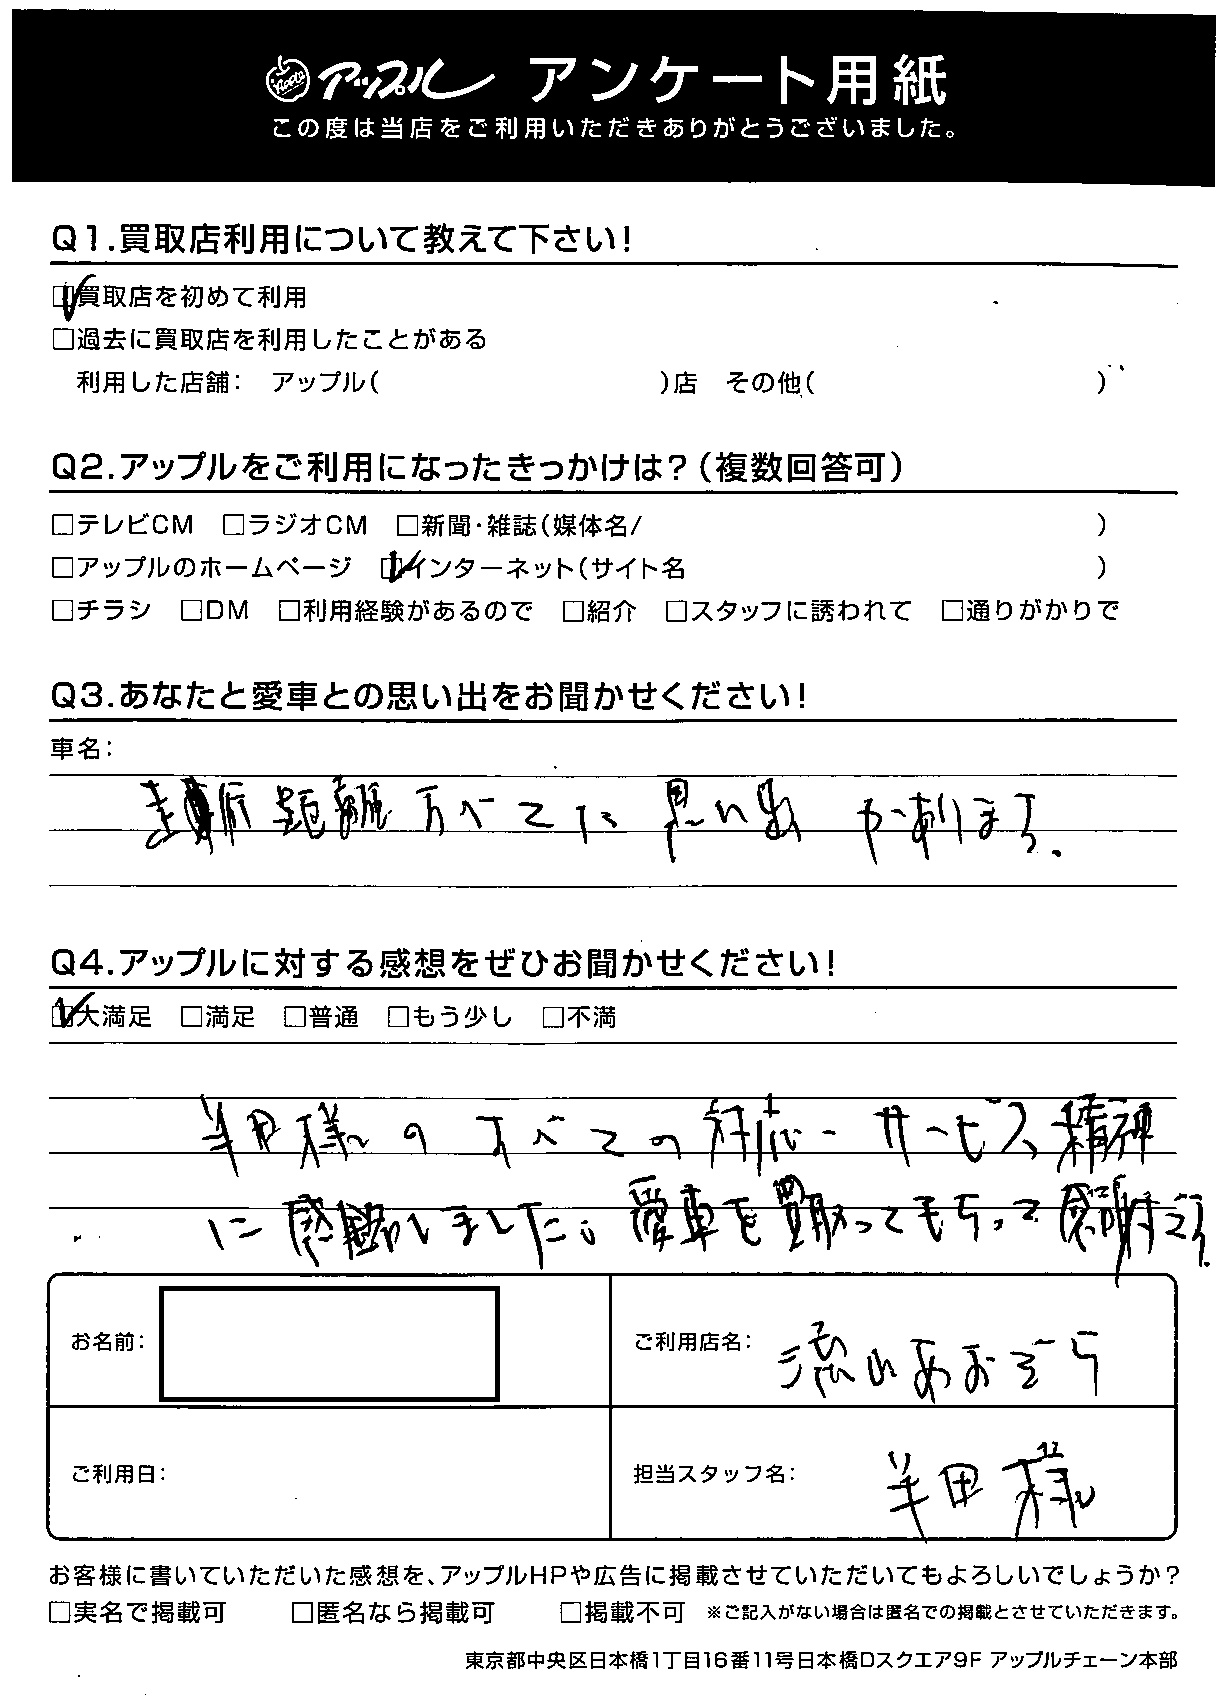 Apple アップル アンケート用紙
この度は当店をご利用いただきありがとうございました。
Q1.買取店利用について教えて下さい!
☑買取店を初めて利用
□過去に買取店を利用したことがある
利用した店舗: アップル( )店 その他( )
Q2.アップルをご利用になったきっかけは?(複数回答可)
□テレビCM □ラジオCM □新聞・雑誌(媒体名/ )
□アップルのホームページ ☑インターネット(サイト名 )
□チラシ □DM □利用経験があるので □紹介 □スタッフに誘われて □通りがかりで
Q3.あなたと愛車との思い出をお聞かせください!
車名:
走行距離すべてに思い出があります.
Q4.アップルに対する感想をぜひお聞かせください!
☑大満足 □満足 □普通 □もう少し □不満
半田様のすべての対応、サービス精神
に感動しました。愛車を買取ってもらって感謝です.
お名前:
ご利用店名: 流山おおぞら
ご利用日:
担当スタッフ名: 半田様
お客様に書いていただいた感想を、アップルHPや広告に掲載させていただいてもよろしいでしょうか?
□実名で掲載可 □匿名なら掲載可 □掲載不可 ※ご記入がない場合は匿名での掲載とさせていただきます。
東京都中央区日本橋1丁目16番11号日本橋Dスクエア9F アップルチェーン本部